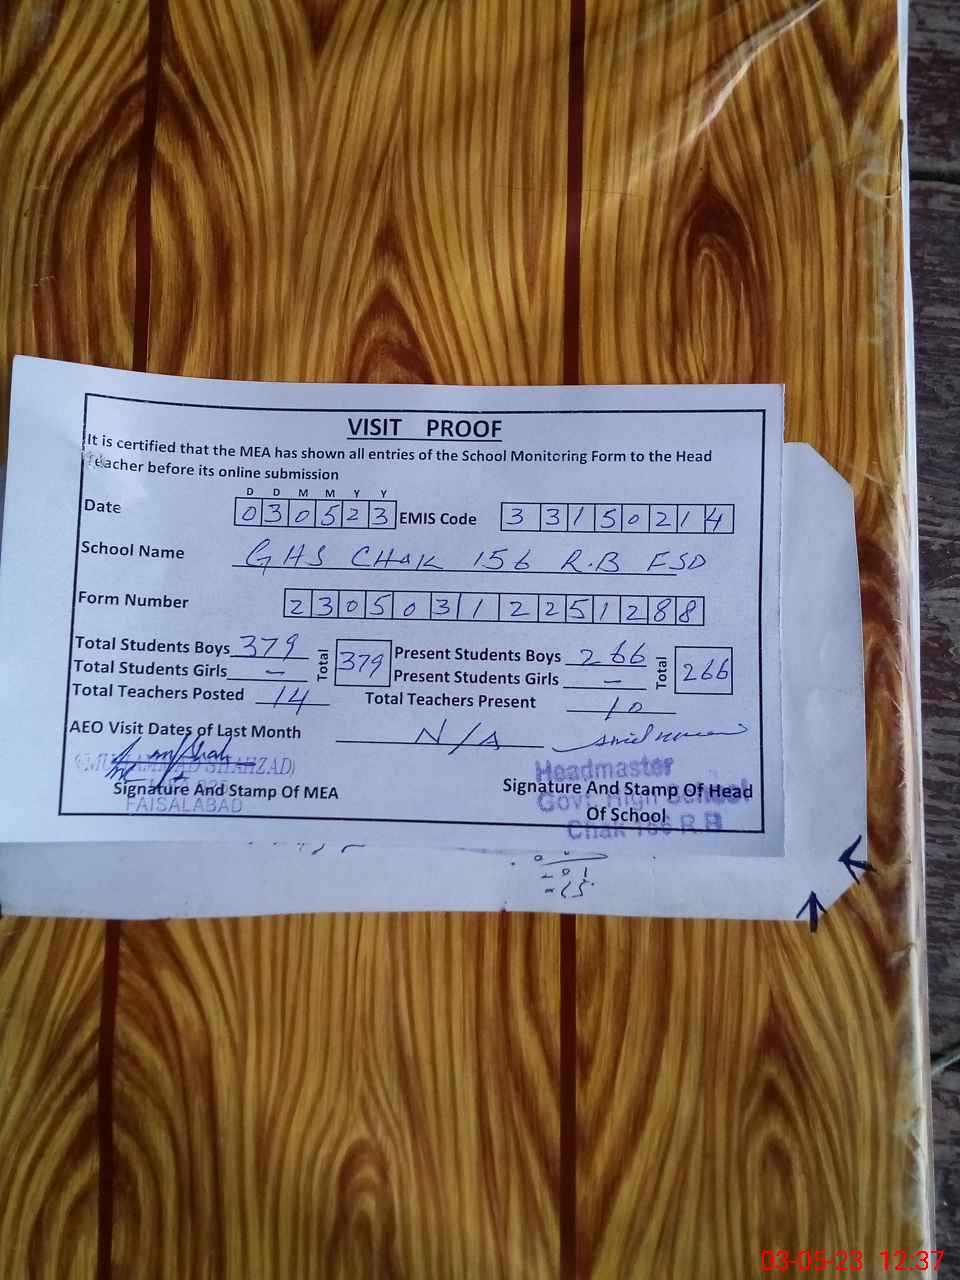 VISIT PROOF
It is certified that the MEA has shown all entries of the School Monitoring Form to the Head
Teacher before its online submission
D D M M Y Y
Date 030523 EMIS Code 33150214
School Name GHS CHAK 156 R.B FSD
Form Number 230503122251288
Total Students Boys 379 Total 379 Present Students Boys 266 Total 266
Total Students Girls - Present Students Girls -
Total Teachers Posted 14 Total Teachers Present 10
AEO Visit Dates of Last Month N/A
(MUHAMMAD SHAHZAD)
Signature And Stamp Of MEA
FAISALABAD
Headmaster
Signature And Stamp Of Head
Govt. High School
Of School
Chak 156 R.B
03-05-23 12:37